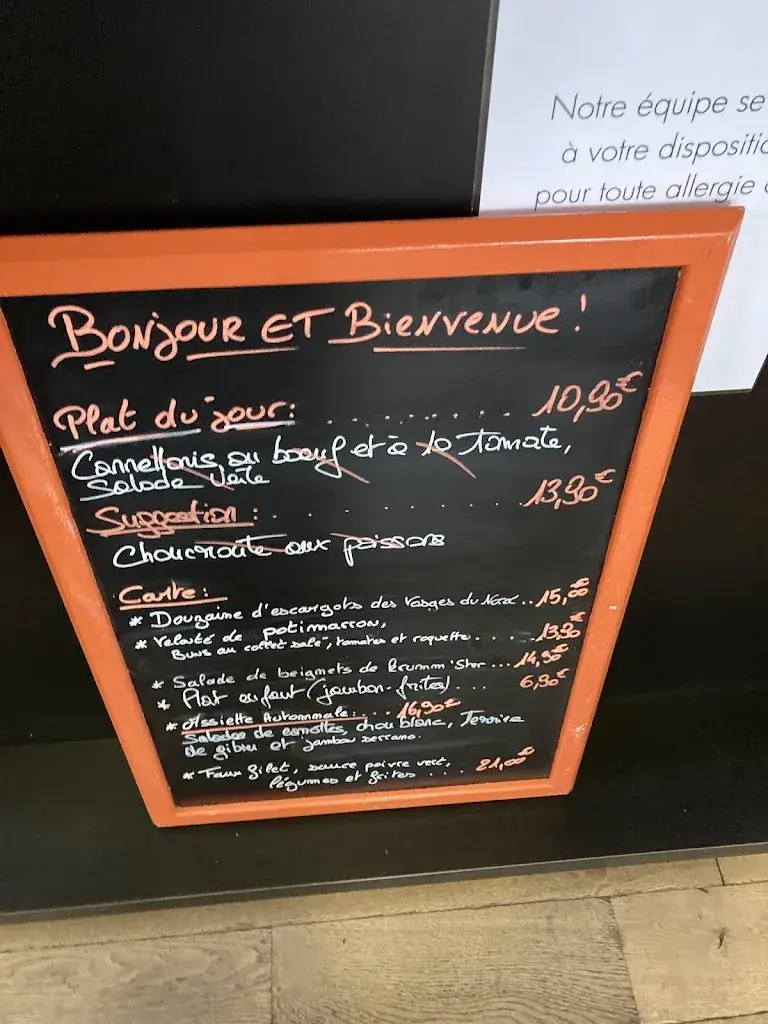 Notre équipe se
à votre dispositio
pour toute allergie
BONJOUR ET BIENVENUE !
Plat du jour: .......... 10,90€
Cannellonis au boeuf et à la tomate,
Salade verte
Suggestion : .......... 13,90€
Choucroute aux poissons
Carte :
* Douzaine d'escargots des Vosges du Nord .. 15,00€
* Velouté de potimarron,
Buns au collet salé, tomates et roquette .... 13,90
* Salade de beignets de Krumm'Ster ... 14,90€
* Plat enfant (jambon-frites) ... 6,90€
* Assiette Automnale: ... 16,90€
Salades de carottes, chou blanc, Terrine
de gibier et jambon serrano.
* Faux filet, sauce poivre vert,
légumes et frites ... 21,00€